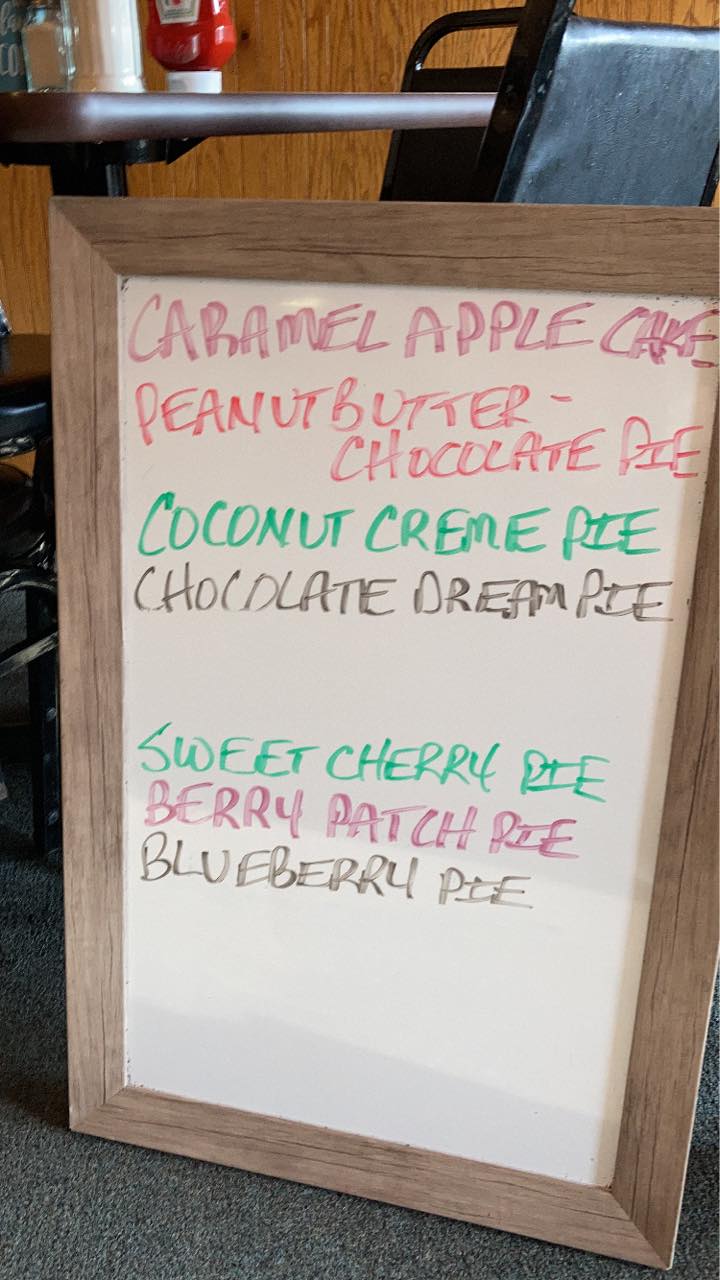 CARAMEL APPLE CAKE
PEANUTBUTTER-
CHOCOLATE PIE
COCONUT CREME PIE
CHOCOLATE DREAM PIE
SWEET CHERRY PIE
BERRY PATCH PIE
BLUEBERRY PIE